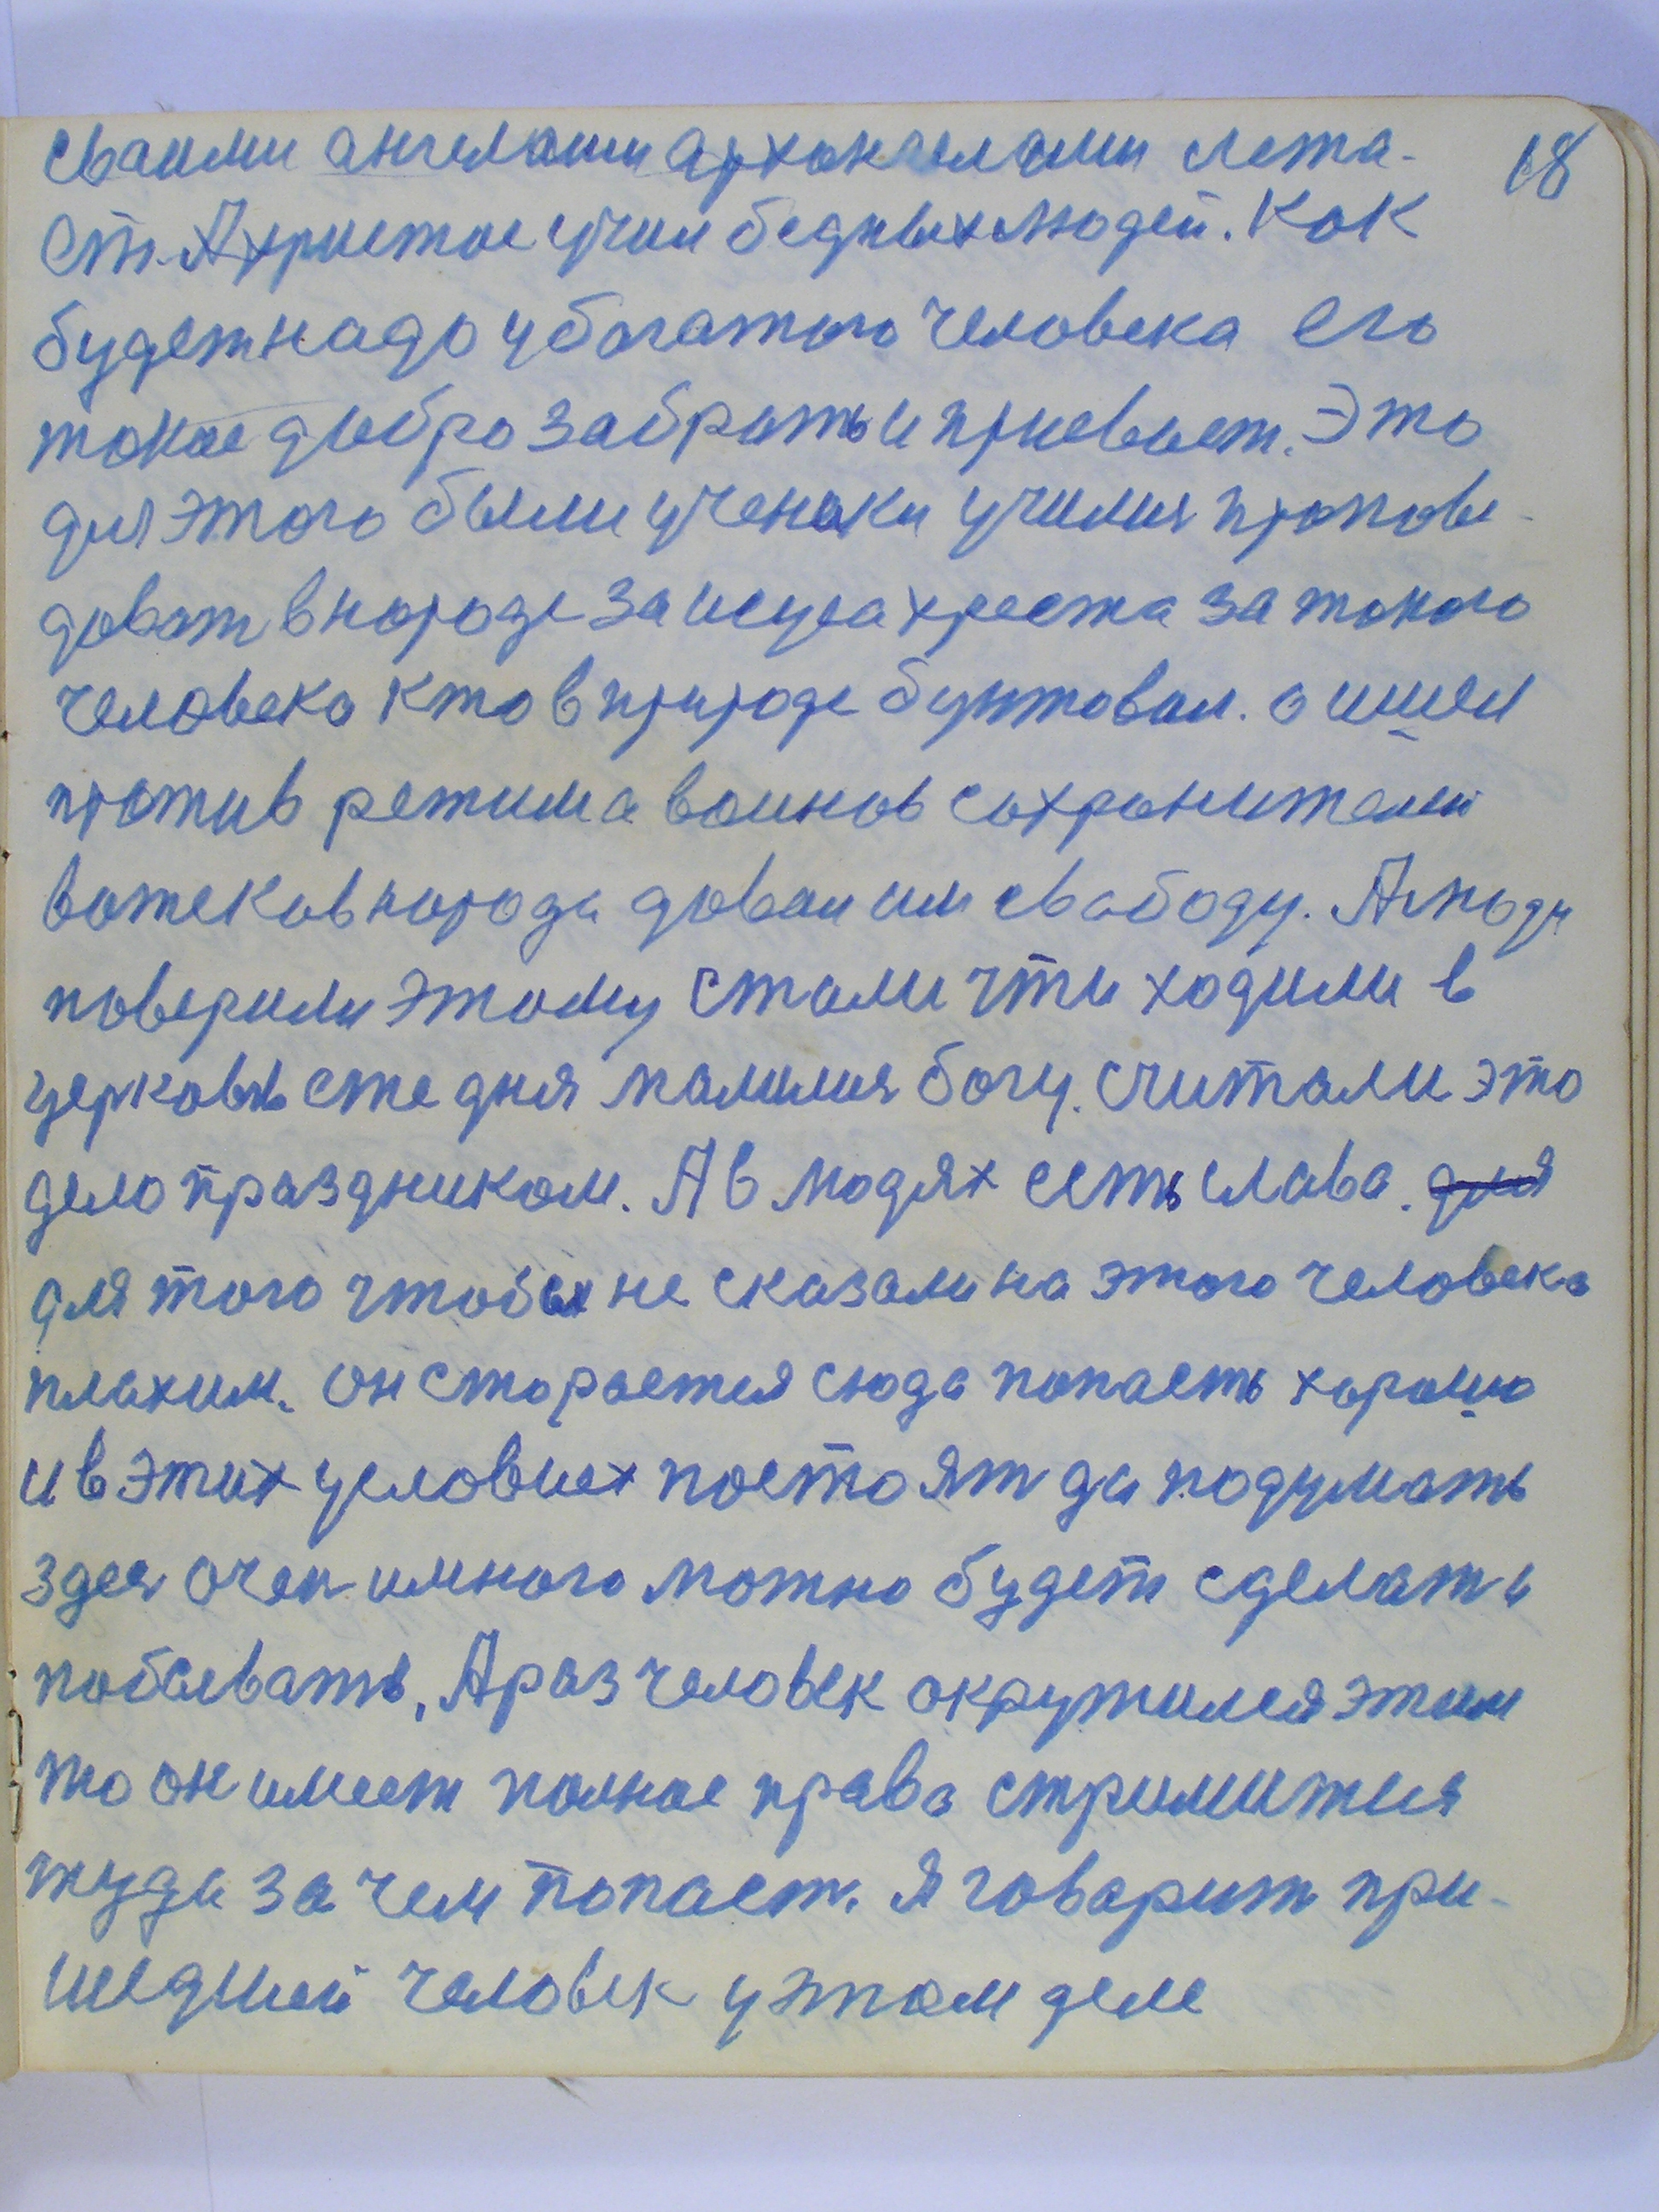 сваими ангелами архонгелами лета- 18
ет. Ахристос учил бедных людей. Как
будет надо у богатого человека его
такое дыбро забрать и присвоет. Это
для этого были ученики училися пропове-
доват в народе за исуса хреста за такого
человека кто в природе бунтовал. а ишел
против режима воинов сахранителей
вожеков народа довал им свабоду. Алюди
поверили этому стали чти ходили в
церковь еже дня малился богу. считали это
дело праздником. А в людях есть слава. для
для того чтобы не сказали на этого человека
плахим. он старается сюда попасть хорошо
и в этих условиех постоят да подумать
здес очен имного можно будет сделать и
побывать, А раз человек окружился этим
то он имеет полное права стримится
туда за чем попаст. я говорит при-
шедшей человек у этом деле